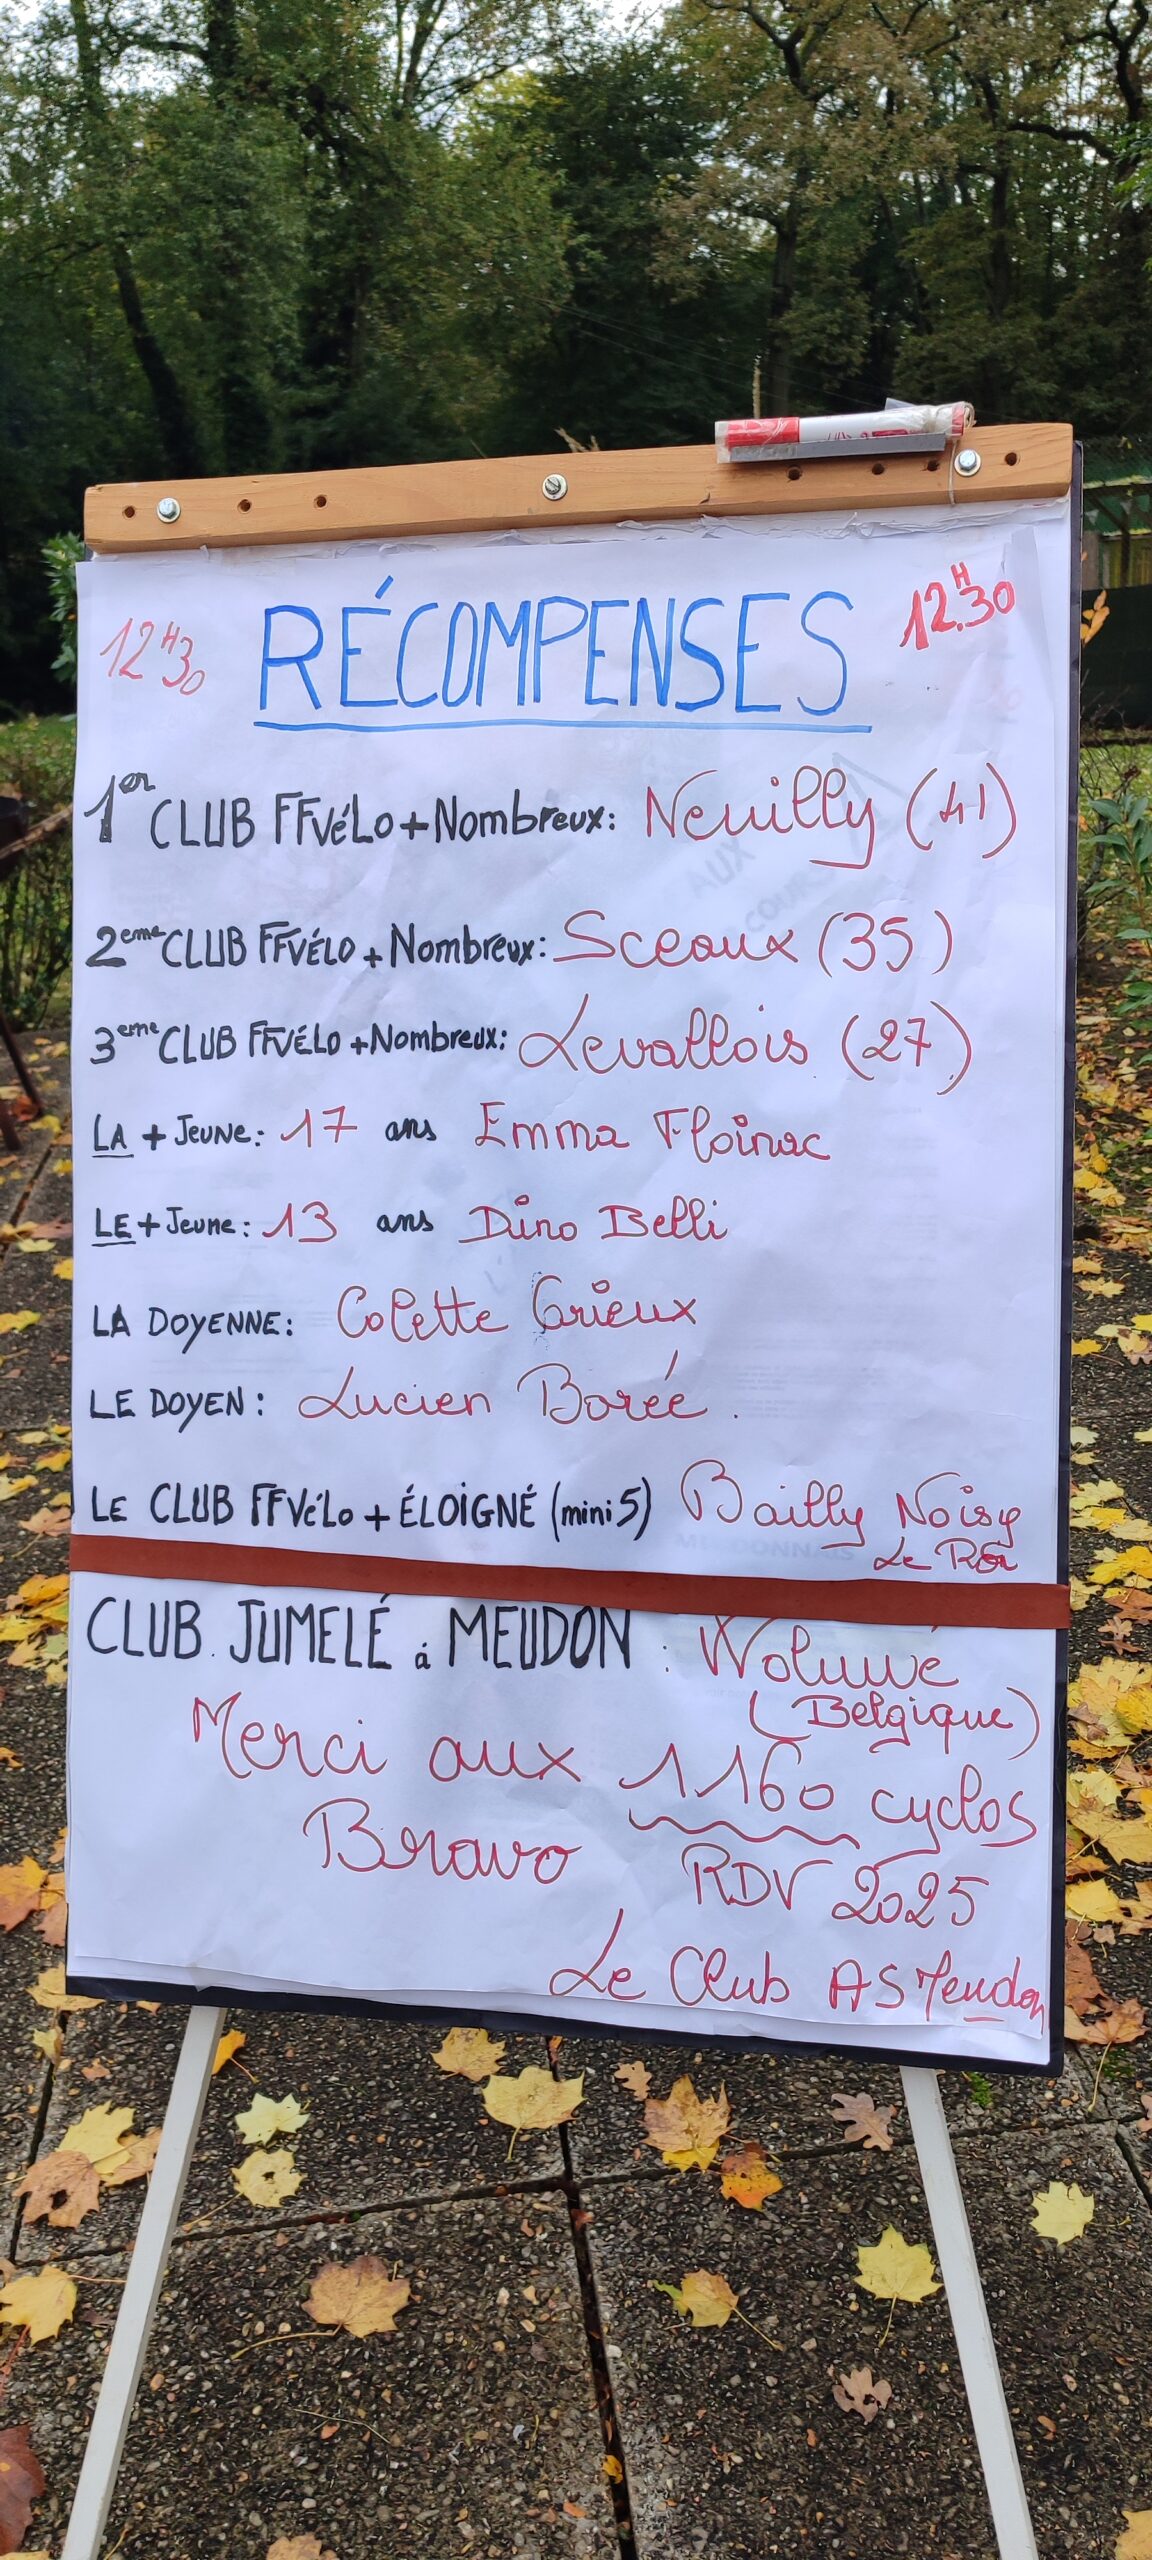 12H30 RÉCOMPENSES 12H30
1er CLUB FFVéLo + Nombreux: Neuilly (41)
2eme CLUB FFVÉLO + Nombreux: Sceaux (35)
3eme CLUB FFVÉLO + Nombreux: Levallois (27)
LA + JEUNE: 17 ans Emma Floirac
LE + Jeune: 13 ans Dino Belli
LA DOYENNE: Colette Grieux
LE DOYEN: Lucien Borée.
LE CLUB FFVéLo + ÉLOIGNÉ (mini 5) Bailly Noisy
Le Roi
CLUB JUMELÉ à MEUDON: Woluwé
(Belgique)
Merci aux 1160 cyclos
Bravo RDV 2025
Le Club AS Meudon